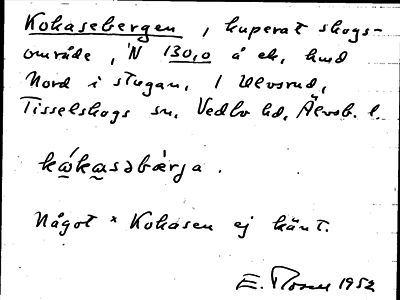 Kokasebergen, kuperat skogs-
område, N 130,0 å ek, hmd
Nord i stugan, 1 Ulvsrud,
Tisselskogs sn, Vedbo hd, Älvsb. l.
kώkasəbærja.
Något * Kokasen ej känt.
E. 1952